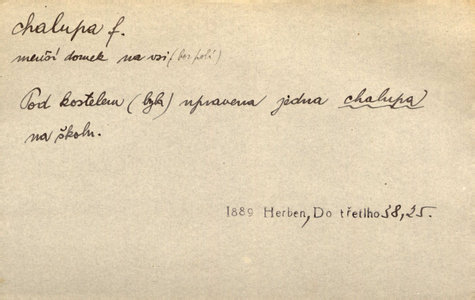 chalupa f.
menší domek na vsi (bez polí)
Pod kostelem (byla) upravena jedna chalupa
na školu.
1889 Herben, Do třetího 38, 25.